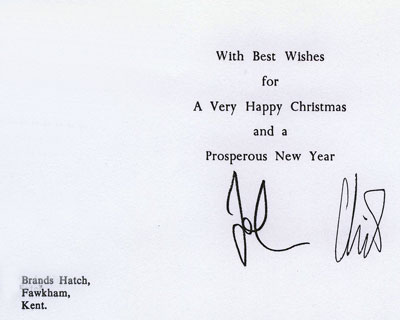 With Best Wishes
for
A Very Happy Christmas
and a
Prosperous New Year
Brands Hatch,
Fawkham,
Kent.